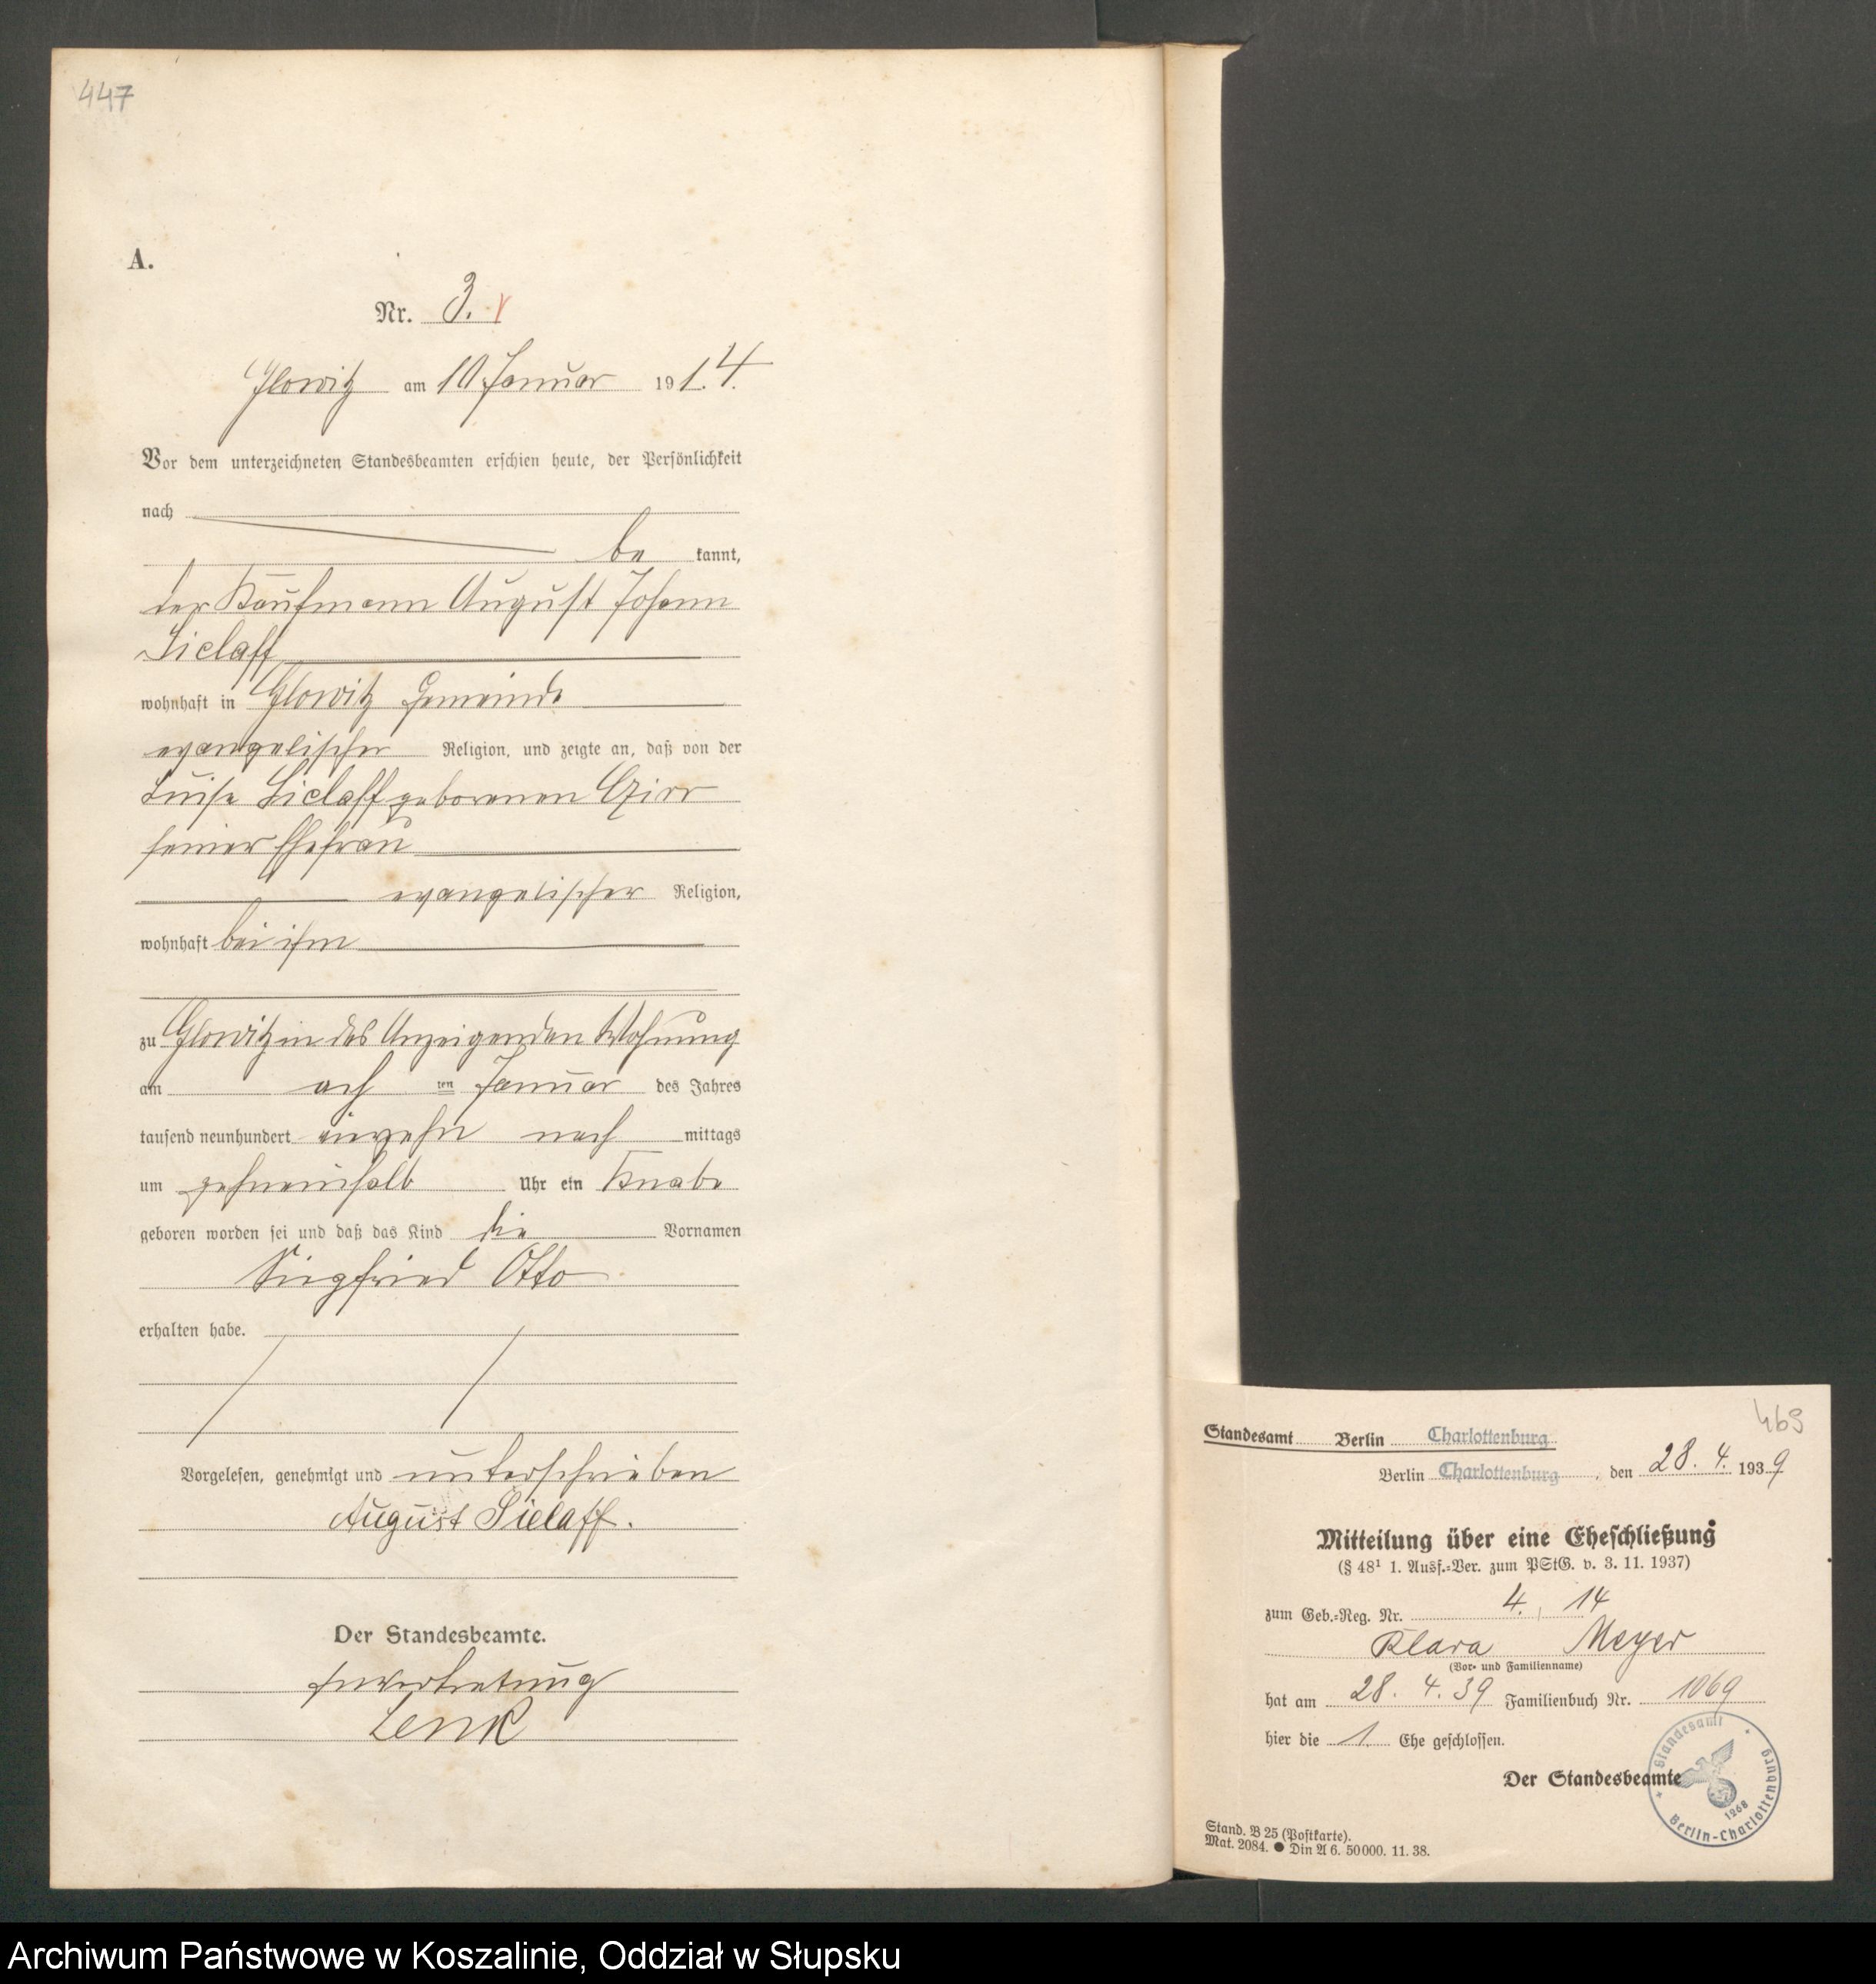 447
A.
Nr. 3.
Glowitz am 10 Januar 1914.
Vor dem unterzeichneten Standesbeamten erschien heute, der Persönlichkeit
nach
be kannt,
der Kaufmann August Johann
Sielaff
wohnhaft in Glowitz Gemeinde
evangelischer Religion, und zeigte an, daß von der
Luise Sielaff geborenen Czirr
seiner Ehefrau
evangelischer Religion,
wohnhaft bei ihm
zu Glowitz in des Anzeigenden Wohnung
am ach ten Januar des Jahres
tausend neunhundert vierzehn nach mittags
um zehneinhalb Uhr ein Knabe
geboren worden sei und daß das Kind die Vornamen
Siegfried Otto
erhalten habe.
Vorgelesen, genehmigt und unterschrieben
August Sielaff.
Der Standesbeamte.
In Vertretung
Lenk
469
Standesamt Berlin Charlottenburg
Berlin Charlottenburg, den 28. 4. 1939
Mitteilung über eine Eheschließung
(§ 48¹ 1. Ausf.=Ver. zum PStG. v. 3. 11. 1937)
zum Geb.=Reg. Nr. 4. / 14
Klara Meyer
(Vor- und Familienname)
hat am 28. 4. 39 Familienbuch Nr. 1069
hier die 1. Ehe geschlossen.
Der Standesbeamte
Standesamt
1268
Berlin-Charlottenburg
Stand. B 25 (Postkarte).
Mat. 2084. ● Din A 6. 50000. 11. 38.
Archiwum Państwowe w Koszalinie, Oddział w Słupsku